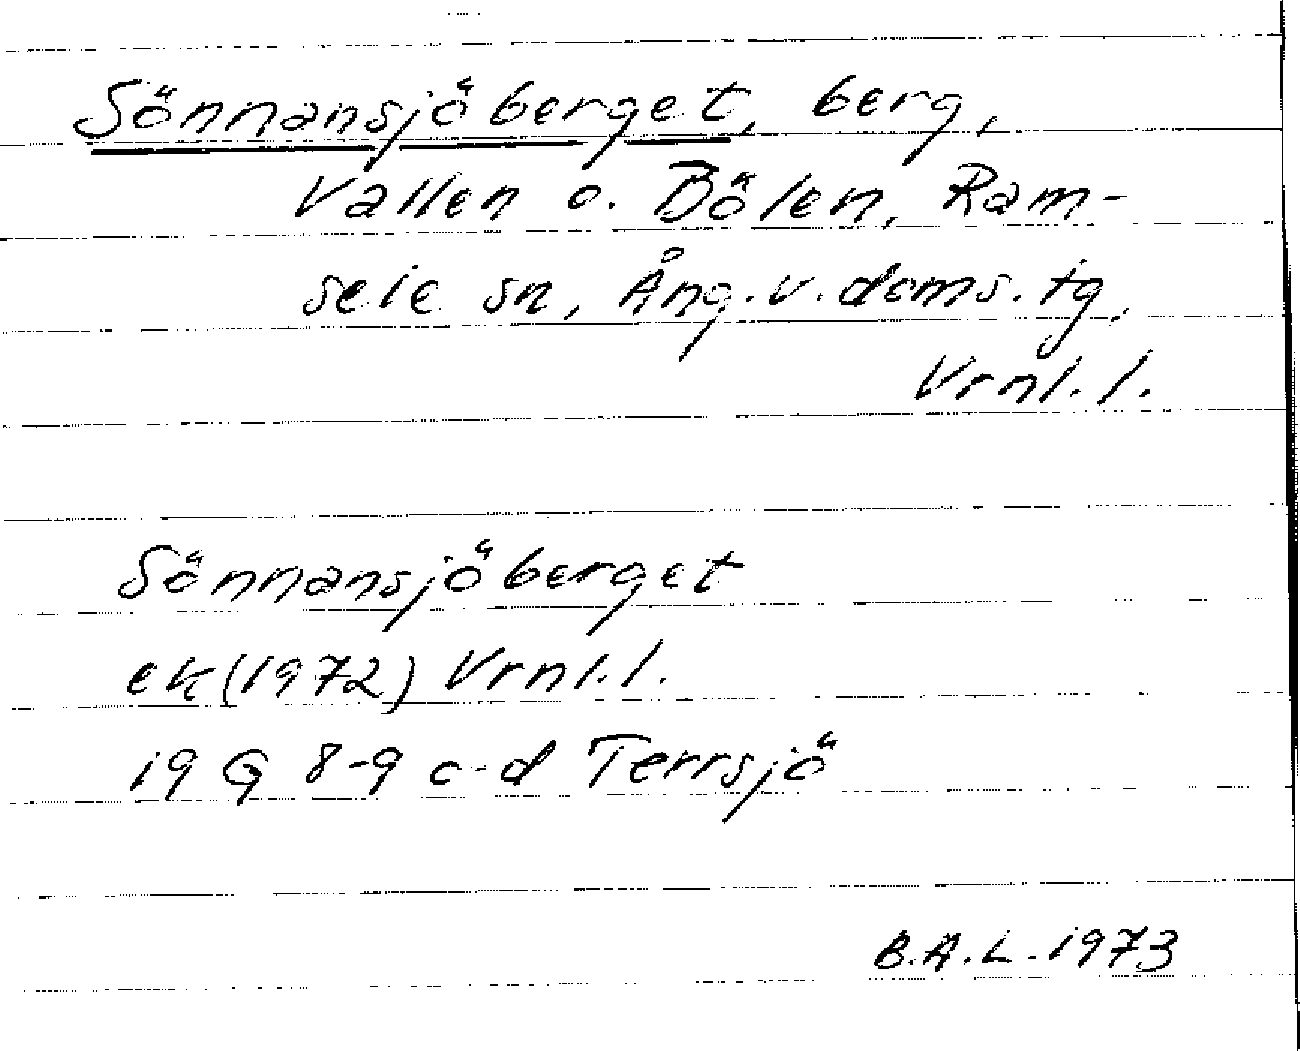 Sönnansjöberget, berg,
Vallen o. Bölen, Ram-
sele sn, Ång.v.doms.tg,
Vrnl.l.
Sönnansjöberget
ek(1972) Vrnl.l.
19 G 8-9 c-d Terrsjö
B.A.L. 1973